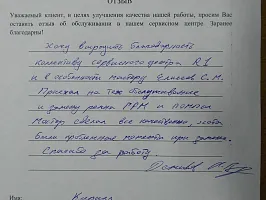 ОТЗЫВ
Уважаемый клиент, в целях улучшения качества нашей работы, просим Вас
оставить отзыв об обслуживании в нашем сервисном центре. Заранее
благодарны!
Хочу выразить благодарность
коллективу сервисного центра R1
и в особенности мастеру Елисов С.М.
Приехал на тех обслуживание
и замену ремня ГРМ и помпы
Мастер сделал все качественно, хотя
были проблемные моменты при замене.
Спасибо за работу.
Имя:
Кирилл